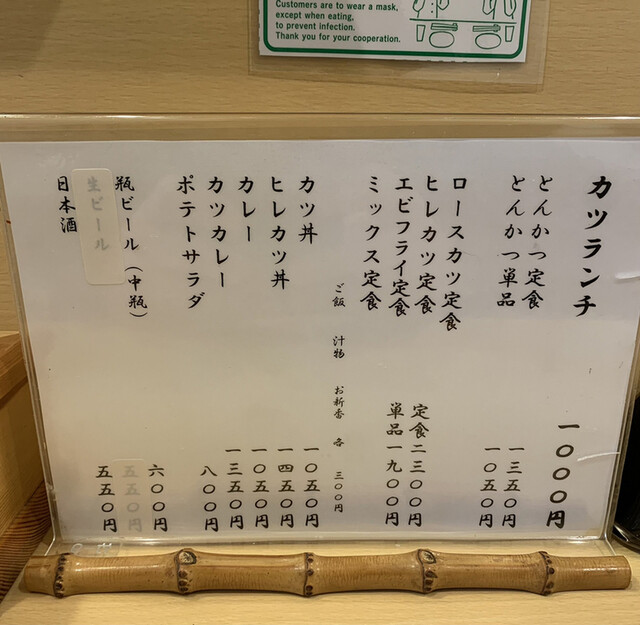 Customers are to wear a mask,
except when eating,
to prevent infection.
Thank you for your cooperation.
カツランチ 一〇〇〇円
とんかつ定食 一三五〇円
とんかつ単品 一〇五〇円
ロースカツ定食
ヒレカツ定食
エビフライ定食
ミックス定食
定食二三〇〇円
単品一九〇〇円
ご飯 汁物 お新香 各 三〇〇円
カツ丼 一〇五〇円
ヒレカツ丼 一四五〇円
カレー 一〇五〇円
カツカレー 一三五〇円
ポテトサラダ 八〇〇円
瓶ビール（中瓶） 六〇〇円
生ビール 五五〇円
日本酒 五五〇円